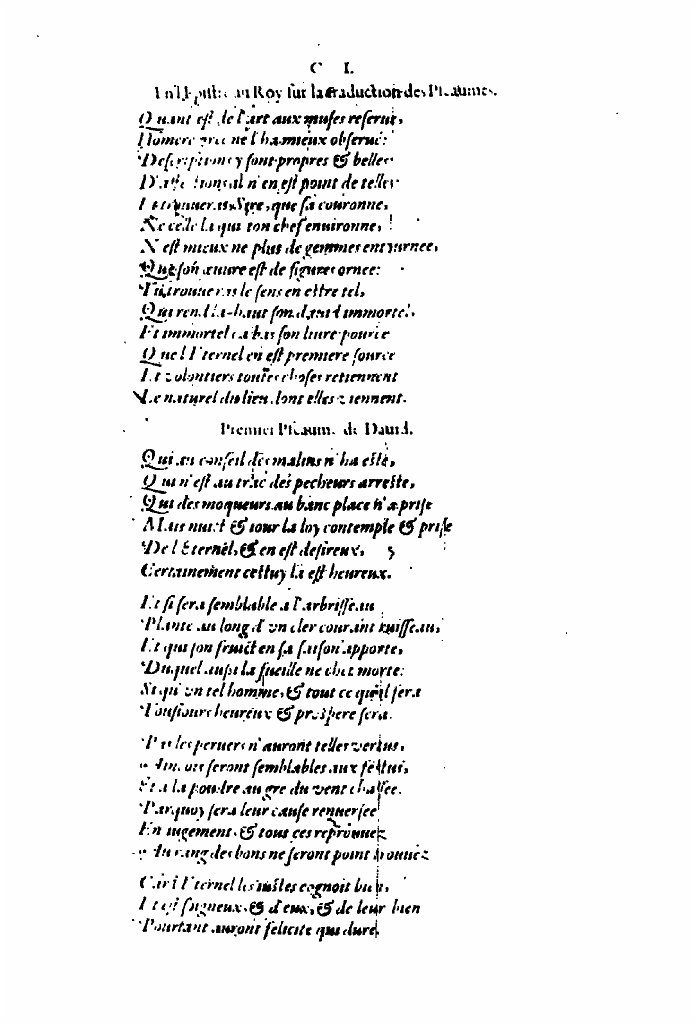 C I.
En l'Epistre au Roy sur la traduction des Pseaumes.
Quant est de l'art aux muses reserué,
Homere grec ne l'ha mieux obserué:
Descriptions y sont propres & belles
D'affections il n'en est point de telles
Et trouueras, Sire, que sa couronne,
Ne celle la qui ton chef enuironne,
N'est mieux ne plus de gemmes entournee,
Que son œuure est de figures ornee:
Tu trouueras le sens en estre tel,
Qui rend la-haut son
Et immortel ça bas son liure pource
Que l'Eternel en est premiere source
Et volontiers toutes choses retiennent
Le naturel du lieu dont elles viennent.
Premier Pseaume de Dauid.
Qui au conseil des malins n'ha esté,
Qui n'est au trac des pecheurs arresté,
Qui des moqueurs au banc place n'a prise
Mais nuict & iour la loy contemple & prise
De l'Eternel, & en est desireux,
Certainement cestuy la est heureux.
Et si sera semblable a l'arbrisseau
Planté au long d'vn cler courant ruisseau,
Et qui son fruict en sa saison apporte,
Duquel aussi la fueille ne chet morte:
Si qu'vn tel homme, & tout ce qu'il fera
Tousiours heureux & prospere sera.
Pas les peruers n'auront telles vertus,
seront semblables aux festus,
Et a la poudre au gre du vent chassee.
Parquoy sera leur cause renuersee
En iugement, & tous ces reprouuez
Au rang des bons ne seront point trouuez
Car l'Eternel les iustes cognoit bien,
Et est soigneux, & d'eux, & de leur bien
Pourtant auront felicite qui dure,